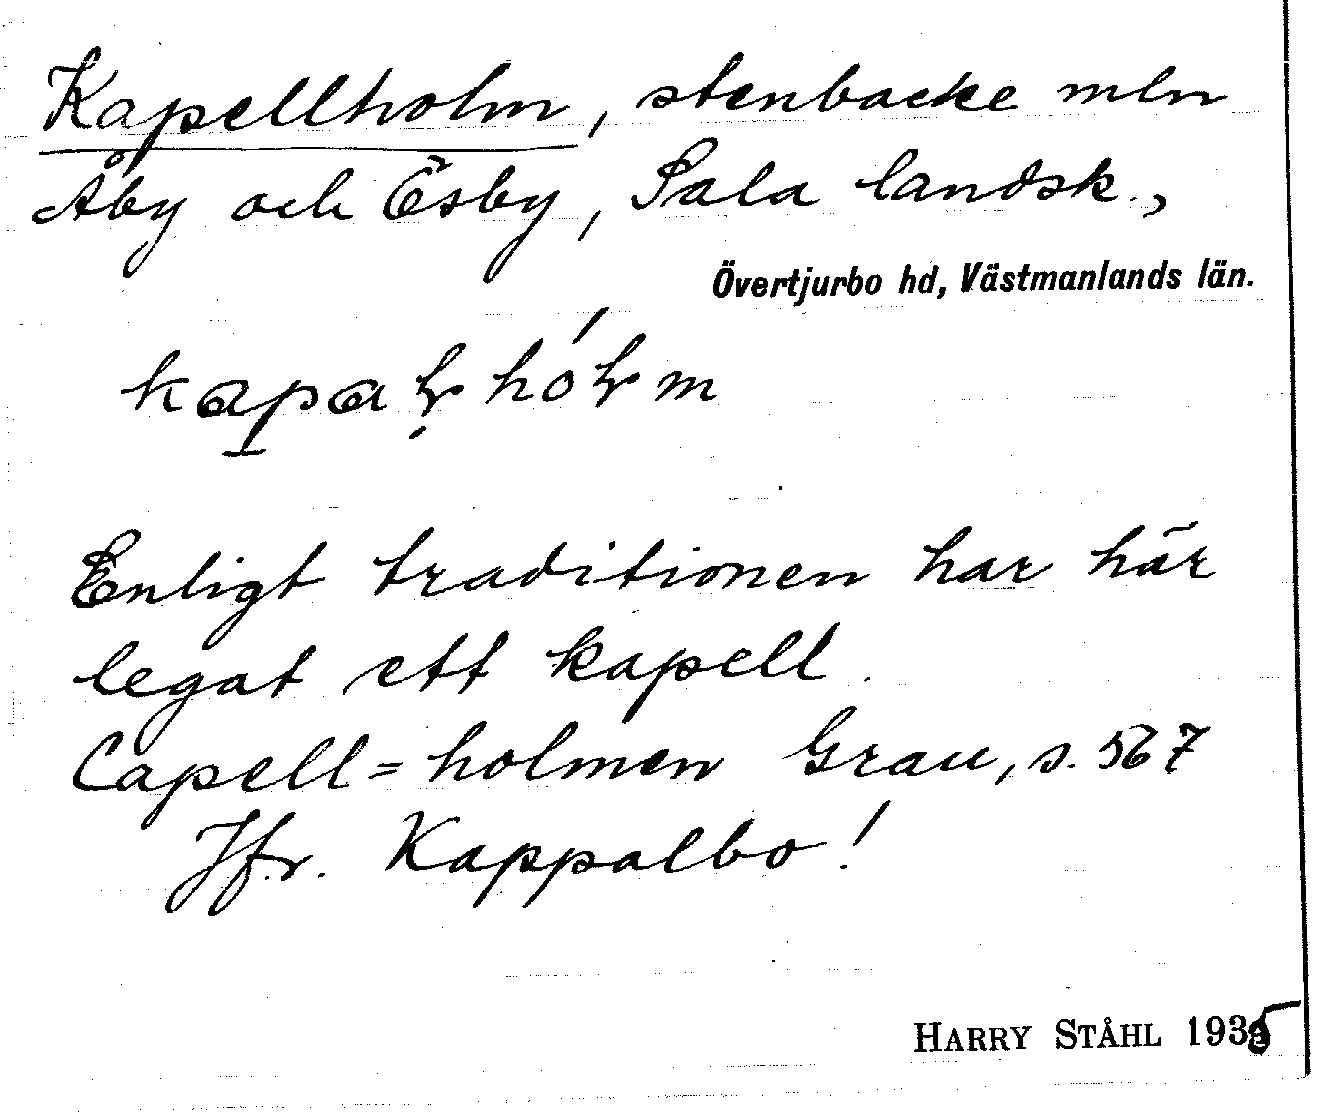 Kapellholm, stenbacke mln
Åby och Ösby, Sala landsk.,
Övertjurbo hd, Västmanlands län.
Enligt traditionen har här
legat ett kapell.
Capell=holmen Grau, s. 567
Jfr. Kappalbo!
HARRY STÅHL 1935